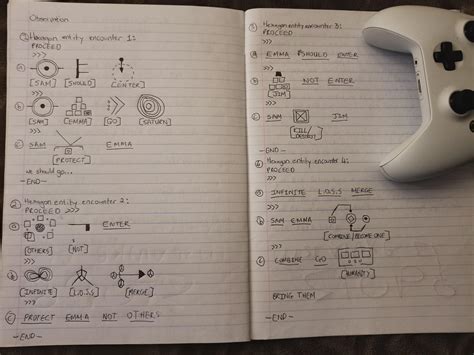 Observation
① Hexagon entity encounter 1:
PROCEED
>>>
ⓐ [SAM] [SHOULD] [ENTER]
>>>
ⓑ [SAM] [EMMA] [GO] [SATURN]
>>>
ⓒ SAM [PROTECT] EMMA
we should go...
-END-
② Hexagon entity encounter 2:
PROCEED >>>
ⓐ [OTHERS] [NOT] ENTER
>>>
ⓑ [INFINITE] [L.O.S.S] [MERGE]
>>>
ⓒ PROTECT EMMA NOT OTHERS
-END-
③ Hexagon entity encounter 3:
PROCEED
>>>
ⓐ EMMA SHOULD ENTER
>>>
ⓑ [JIM] NOT ENTER
>>>
ⓒ SAM [KILL/DESTROY] JIM
-END-
④ Hexagon entity encounter 4:
PROCEED
>>>
ⓐ INFINITE L.O.S.S MERGE
>>>
ⓑ SAM EMMA [COMBINE/BECOME ONE]
>>>
ⓒ COMBINE GO
BRING THEM
-END-